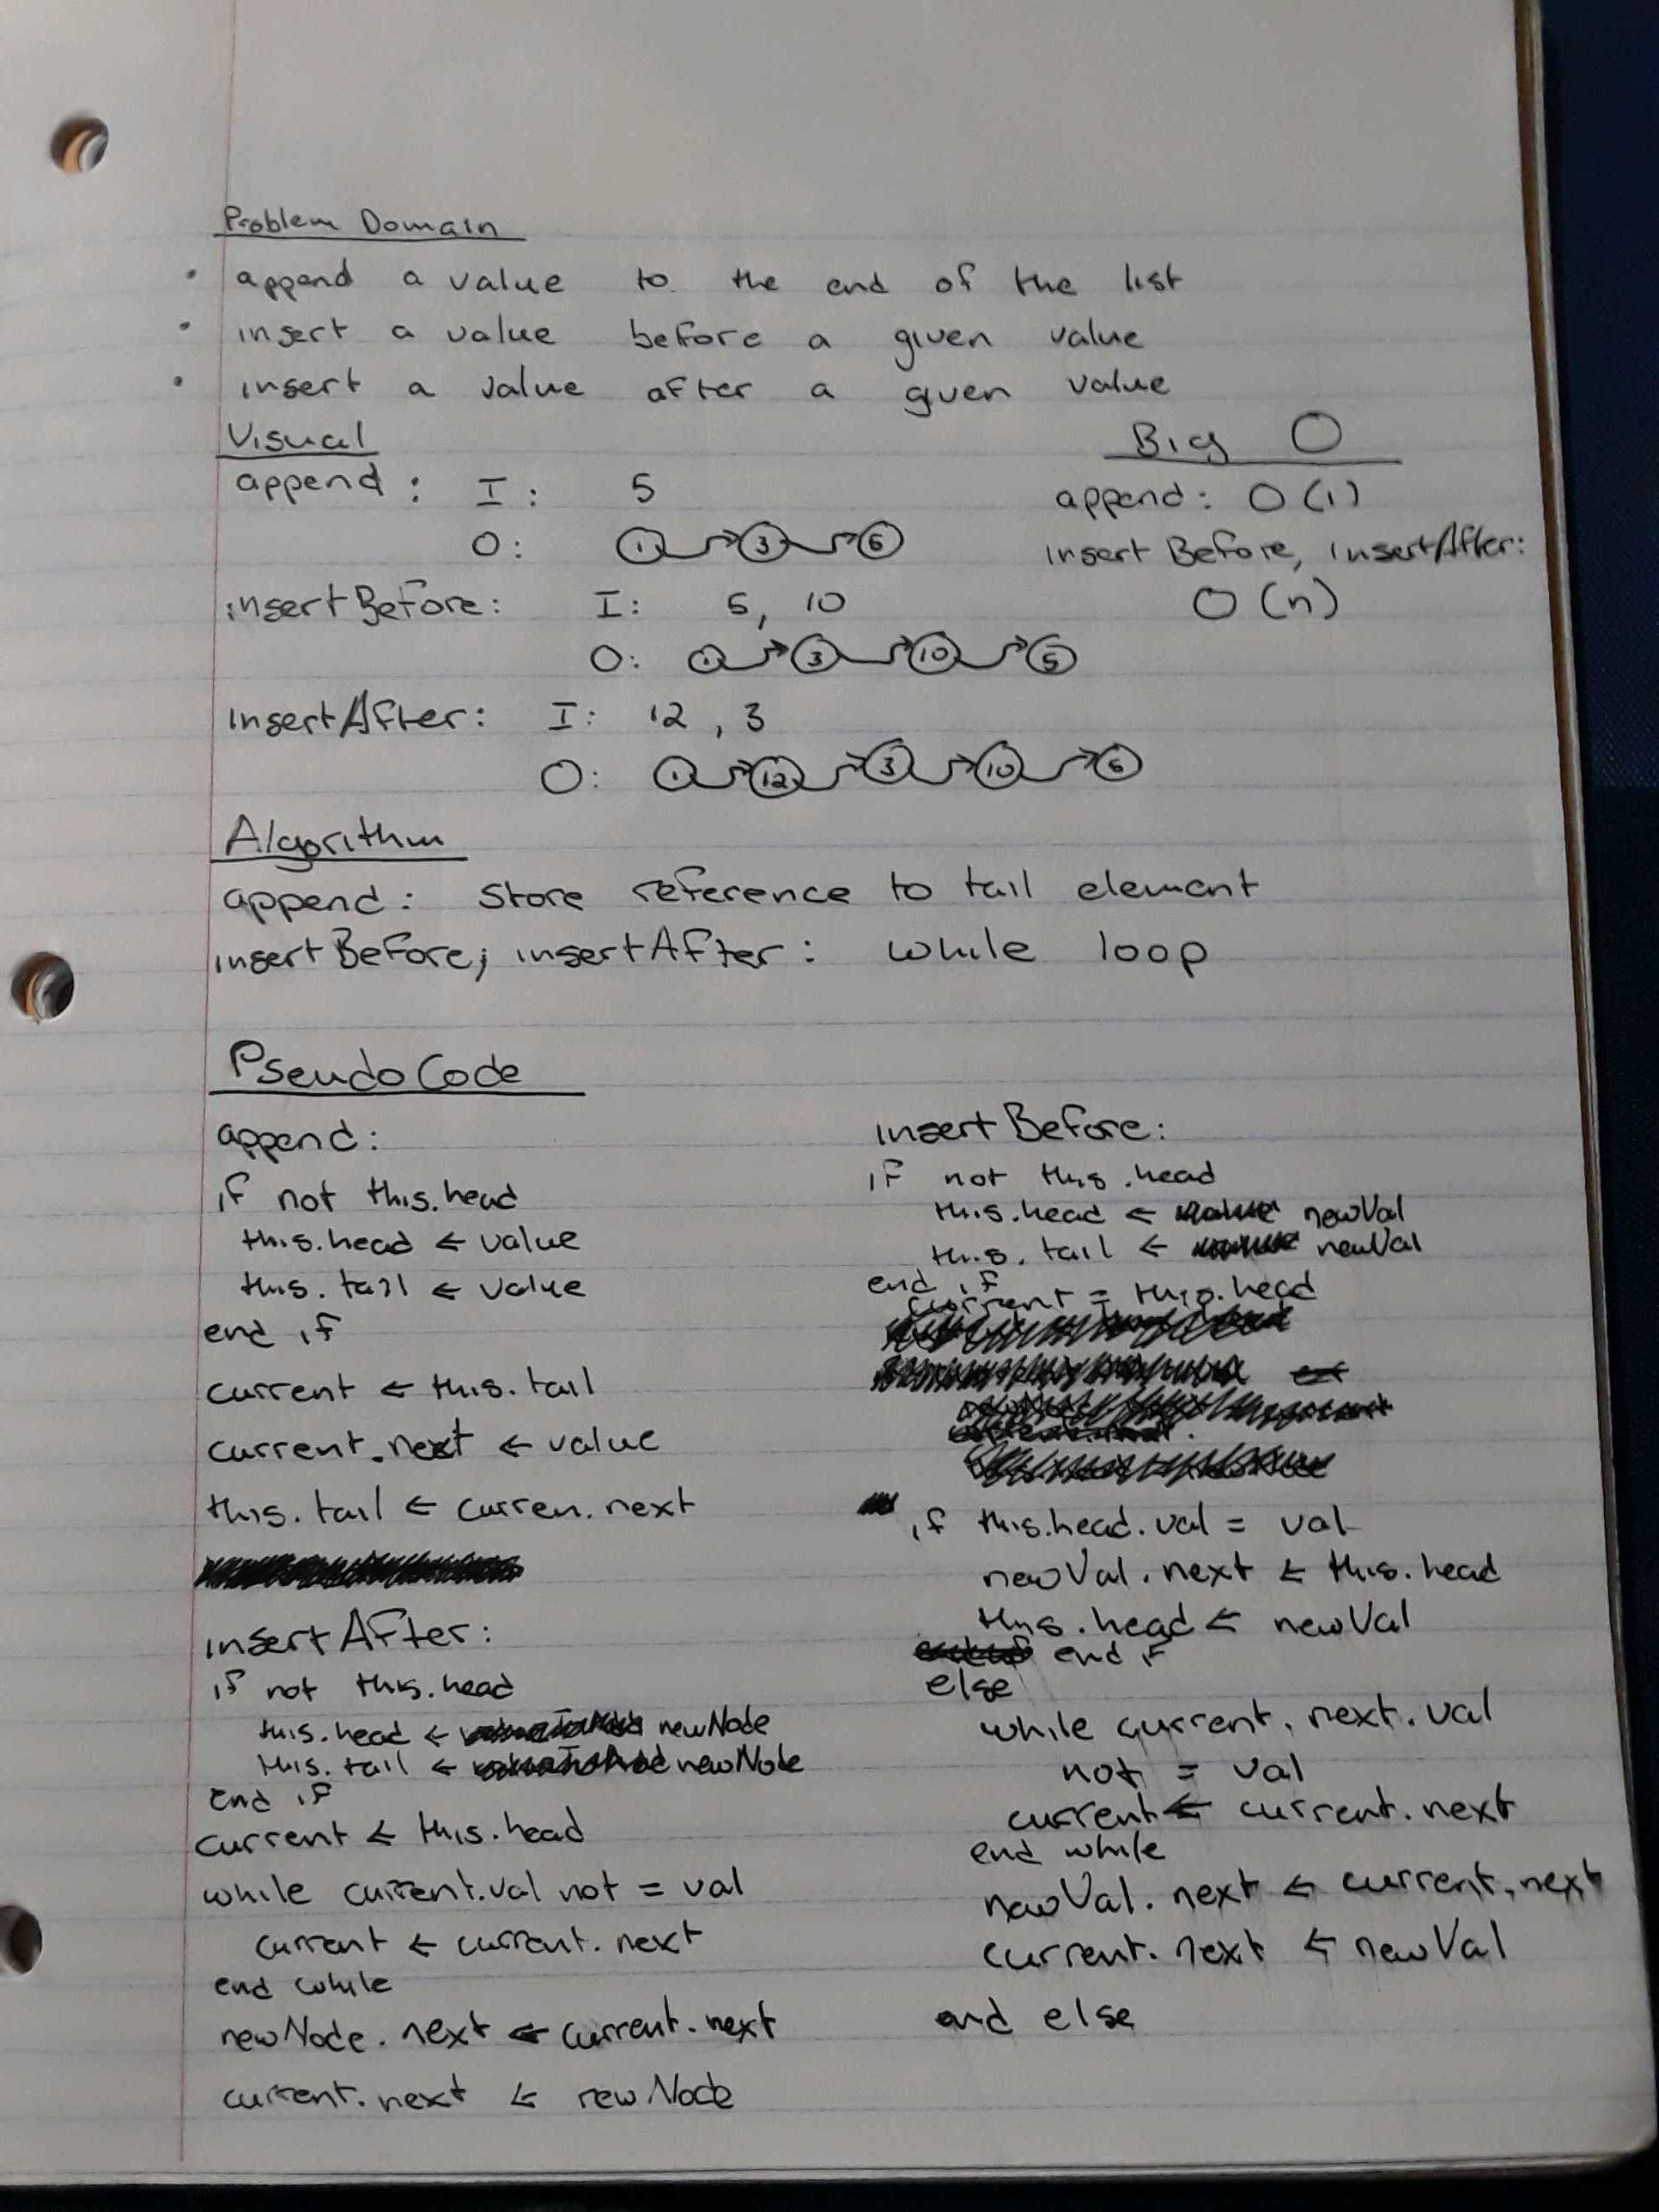 Problem Domain
• append a value to the end of the list
• insert a value before a given value
• insert a value after a given value
Visual
append: I: 5
O: 1 → 3 → 5
insertBefore: I: 5, 10
O: 1 → 3 → 10 → 5
insertAfter: I: 12, 3
O: 1 → 12 → 3 → 10 → 5
Big O
append: O(1)
insertBefore, insertAfter:
O(n)
Algorithm
append: Store reference to tail element
insertBefore; insertAfter: while loop
PseudoCode
append:
if not this.head
this.head ← value
this.tail ← value
end if
current ← this.tail
current.next ← value
this.tail ← curren.next
insertAfter:
if not this.head
this.head ← newNode
this.tail ← newNode
end if
current ← this.head
while current.val not = val
current ← current.next
end while
newNode.next ← current.next
current.next ← newNode
insertBefore:
if not this.head
this.head ← newVal
this.tail ← newVal
end if
current = this.head
if this.head.val = val
newVal.next ← this.head
this.head ← newVal
end if
else
while current.next.val
not = val
current ← current.next
end while
newVal.next ← current.next
current.next ← newVal
end else